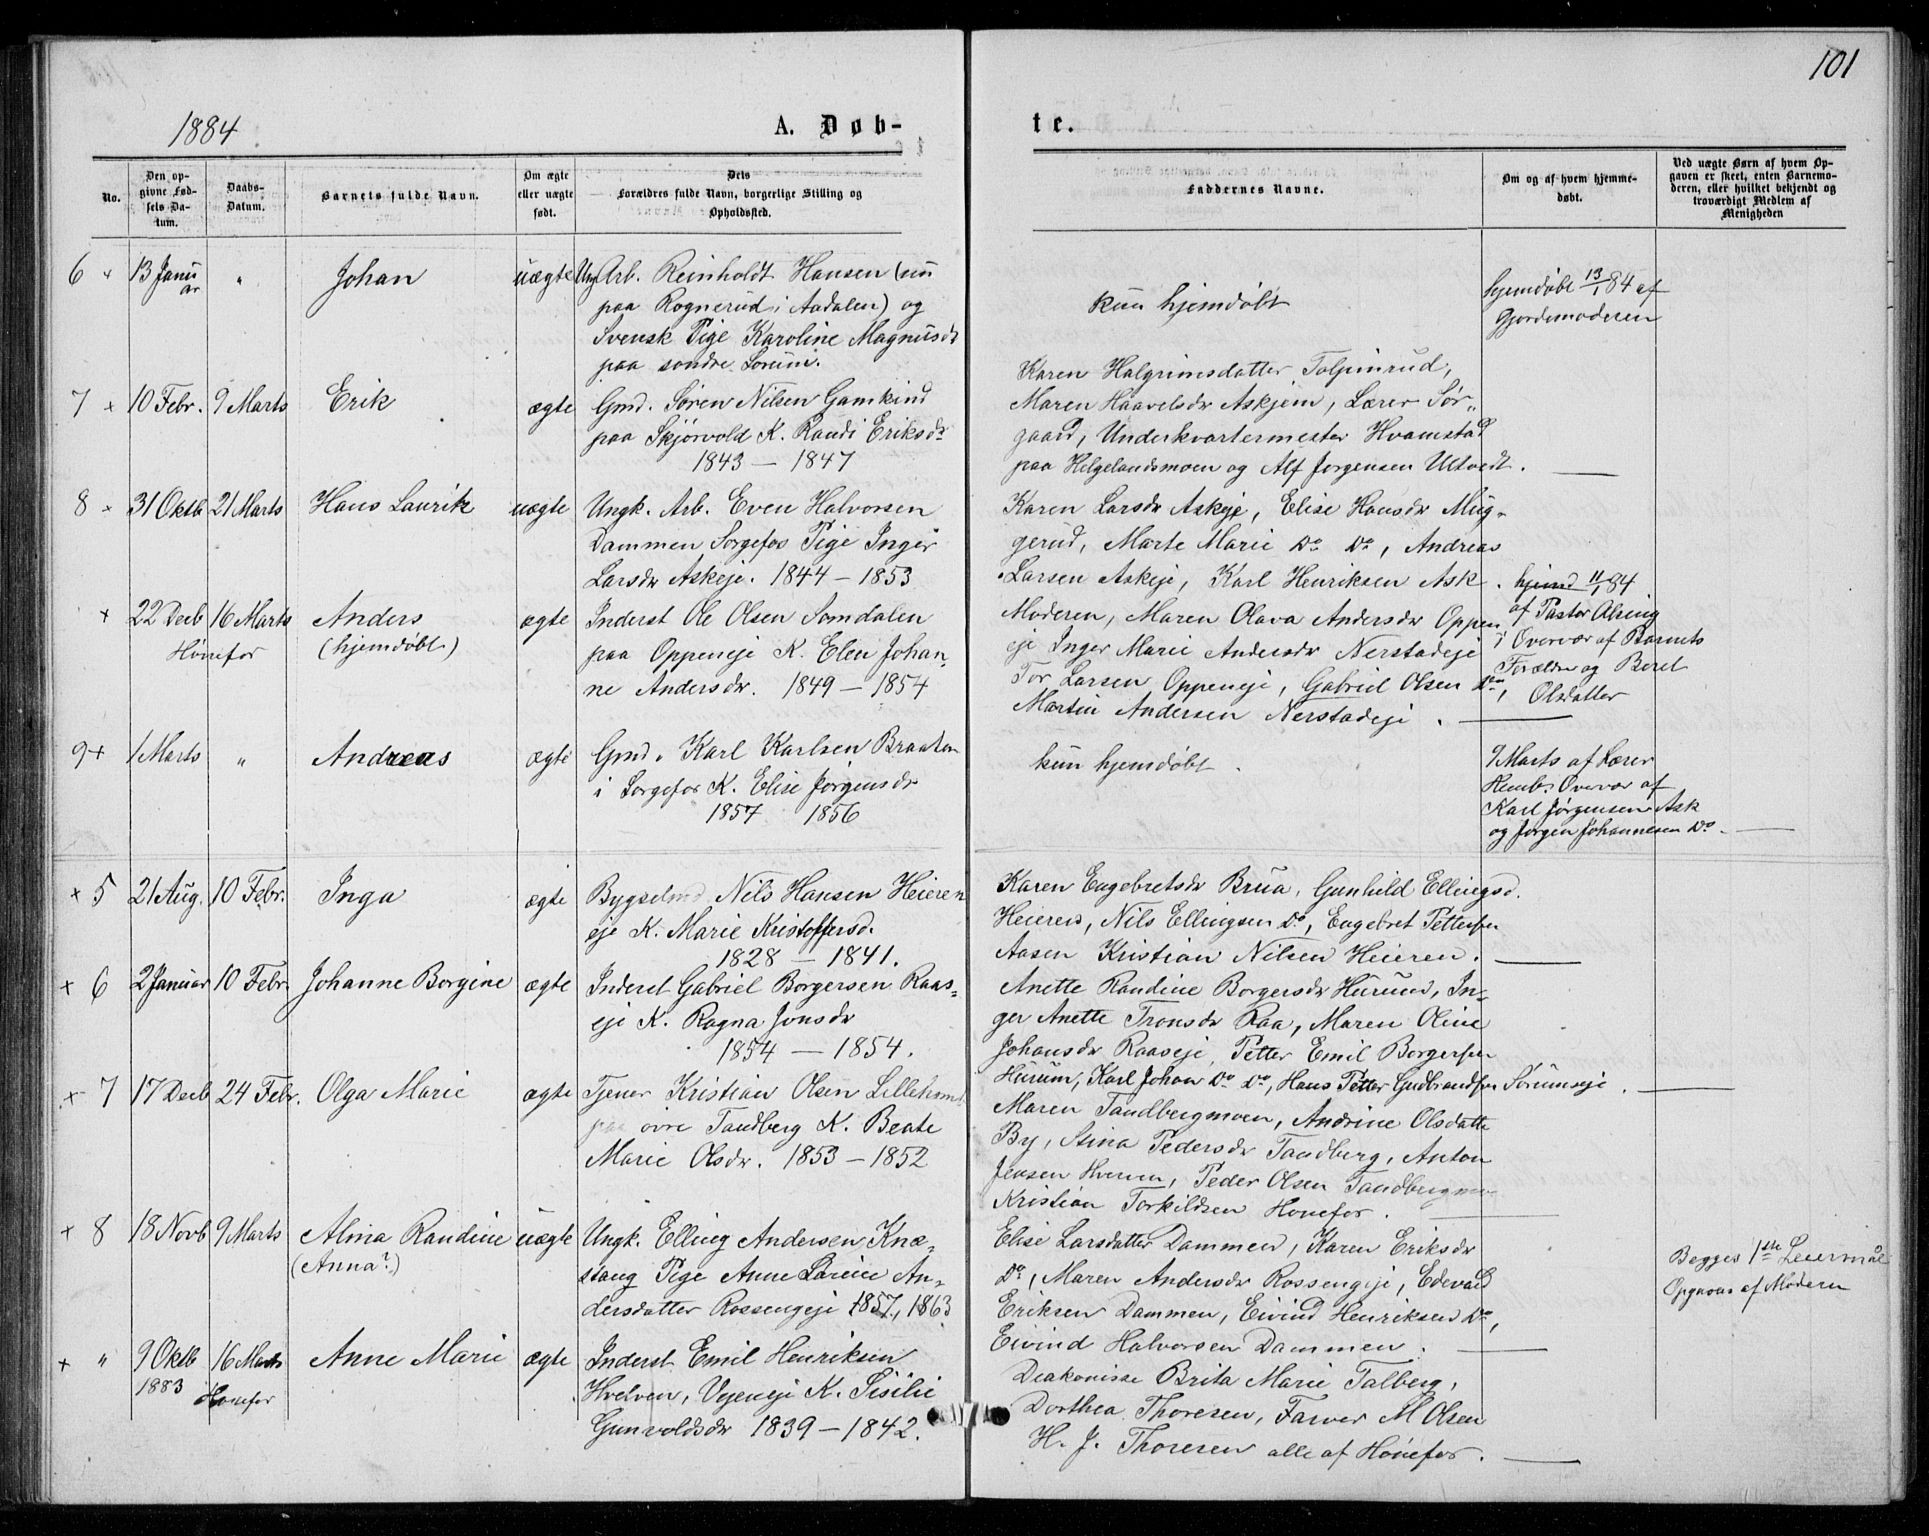 101
1884
A. Døb-
te.
No.
Den op-
givne Fød-
sels Da-
tum.
Daabs-
Datum.
Barnets fulde Navn.
Om ægte
eller uægte
født.
Dets
Forældres fulde Navn, borgerlige Stilling og
Opholdssted.
Faddernes Navne.
Om og af hvem hjemme-
døbt.
Ved uægte Børn af hvem Op-
gaven er skeet, enten Barnemo-
deren, eller hvilket bekjendt og
troværdigt Medlem af
Menigheden
6 × 13 Janu
ar " Johan uægte Ung Arb. Reinholdt Hansen (nu
paa Rognerud i Aadalen) og
Svensk Pige Karoline Magnusdr
paa søndre Sørum.
kun hjemdøbt
hjemdøbt 13/1 84 af
Gjordemoderen
7 × 10 Febr. 9 Marts Erik ægte Gmd. Søren Nilsen Gamkind
paa Skjørvold K. Randi Eriksdr
1843 — 1847
Karen Halgrimsdatter Tolpinrud,
Maren Haavelsdr Askjem, Lærer Sør-
gaard, Underkvartermester Hvamstad
paa Helgelandsmoen og Alf Jørgensen Ultvedt.
8 × 31 Oktb 21 Marts Hans Laurik uægte Ungk. Arb. Even Halvorsen
Dammen Sørgefos Pige Inger
Larsdr Askeje. 1844 — 1853
Karen Larsdr Askeje, Elise Hansdr Mug-
gerud, Marte Marie Do Do, Andreas
Larsen Askeje, Karl Henriksen Ask.
× 22 Decb 16 Marts Anders ægte Inderst Ole Olsen Somdalen
Hønefos (hjemdøbt) paa Oppeneje K. Elen Johan-
ne Andersdr. 1849 — 1854
Moderen, Maren Olava Andersdr Oppen
eje Inger Marie Andersdr Nerstadeje
Tor Larsen Oppeneje, Gabriel Olsen Do,
Martin Andersen Nerstadeje.
hjemd 11/1 84
af Pastor Alsing
i Overvær af Barnets
Forældre og Beret
Olsdatter
9 × 1 Marts " Andreas ægte Gmd. Karl Karlsen Braaten
i Sørgefos K. Elise Jørgensdr
1857 1856
kun hjemdøbt.
9 Marts af Lærer
Hemb. Overvær af
Karl Jørgensen Ask
og Jørgen Johannesen Do.
× 5 21 Aug. 10 Febr. Inga ægte Bygselmd Nils Hansen Heieren
eje K. Marie Kristoffersd.
1828 — 1841.
Karen Engebretsdr Brua, Gunhild Ellingsd.
Heieren, Nils Ellingsen Do, Engebret Pettersen
Aasen Kristian Nilsen Heieren.
× 6 2 Januar 10 Febr. Johanne Borgine ægte Inderst Gabriel Borgersen Raas-
eje K. Ragna Jonsdr
1854 — 1854.
Anette Randine Borgersdr Hurum, In-
ger Anette Tronsdr Raa, Maren Oline
Johansdr Raaseje, Petter Emil Borgersen
Hurum, Karl Johan Do Do, Hans Petter Gudbrandsen Sørumseje.
× 7 17 Decb 24 Febr. Olga Marie ægte Tjener Kristian Olsen Lillehamr
paa øvre Tandberg K. Beate
Marie Olsdr. 1853 — 1852
Maren Tandbergmoen, Andrine Olsdatter
By, Stina Pedersdr Tandberg, Anton
Jensen Hverven, Peder Olsen Tandbergmo
Kristian Torkildsen Hønefos.
× 8 18 Novb 9 Marts Alina Randine uægte Ungk. Elling Andersen Knæ-
(Anna?) stang Pige Anne Lorine An-
dersdatter Rossengeje 1857, 1863
Elise Larsdatter Dammen, Karen Eriksdr
Do, Maren Andersdr Rossengeje, Edevard
Eriksen Dammen, Eivind Henriksen Do,
Eivind Halvorsen Dammen.
Begges 1ste Leiermål
Opgaven af Moderen
× " 9 Oktb 16 Marts Anne Marie ægte Inderst Emil Henriksen
1883 Hønefos Hvelven, Vejeneje K. Sisilie
Gunvoldsdr 1839 — 1842.
Diakonisse Brita Marie Talberg,
Dorthea Thoresen, Farver M Olsen
H. J. Thoresen alle af Hønefos.